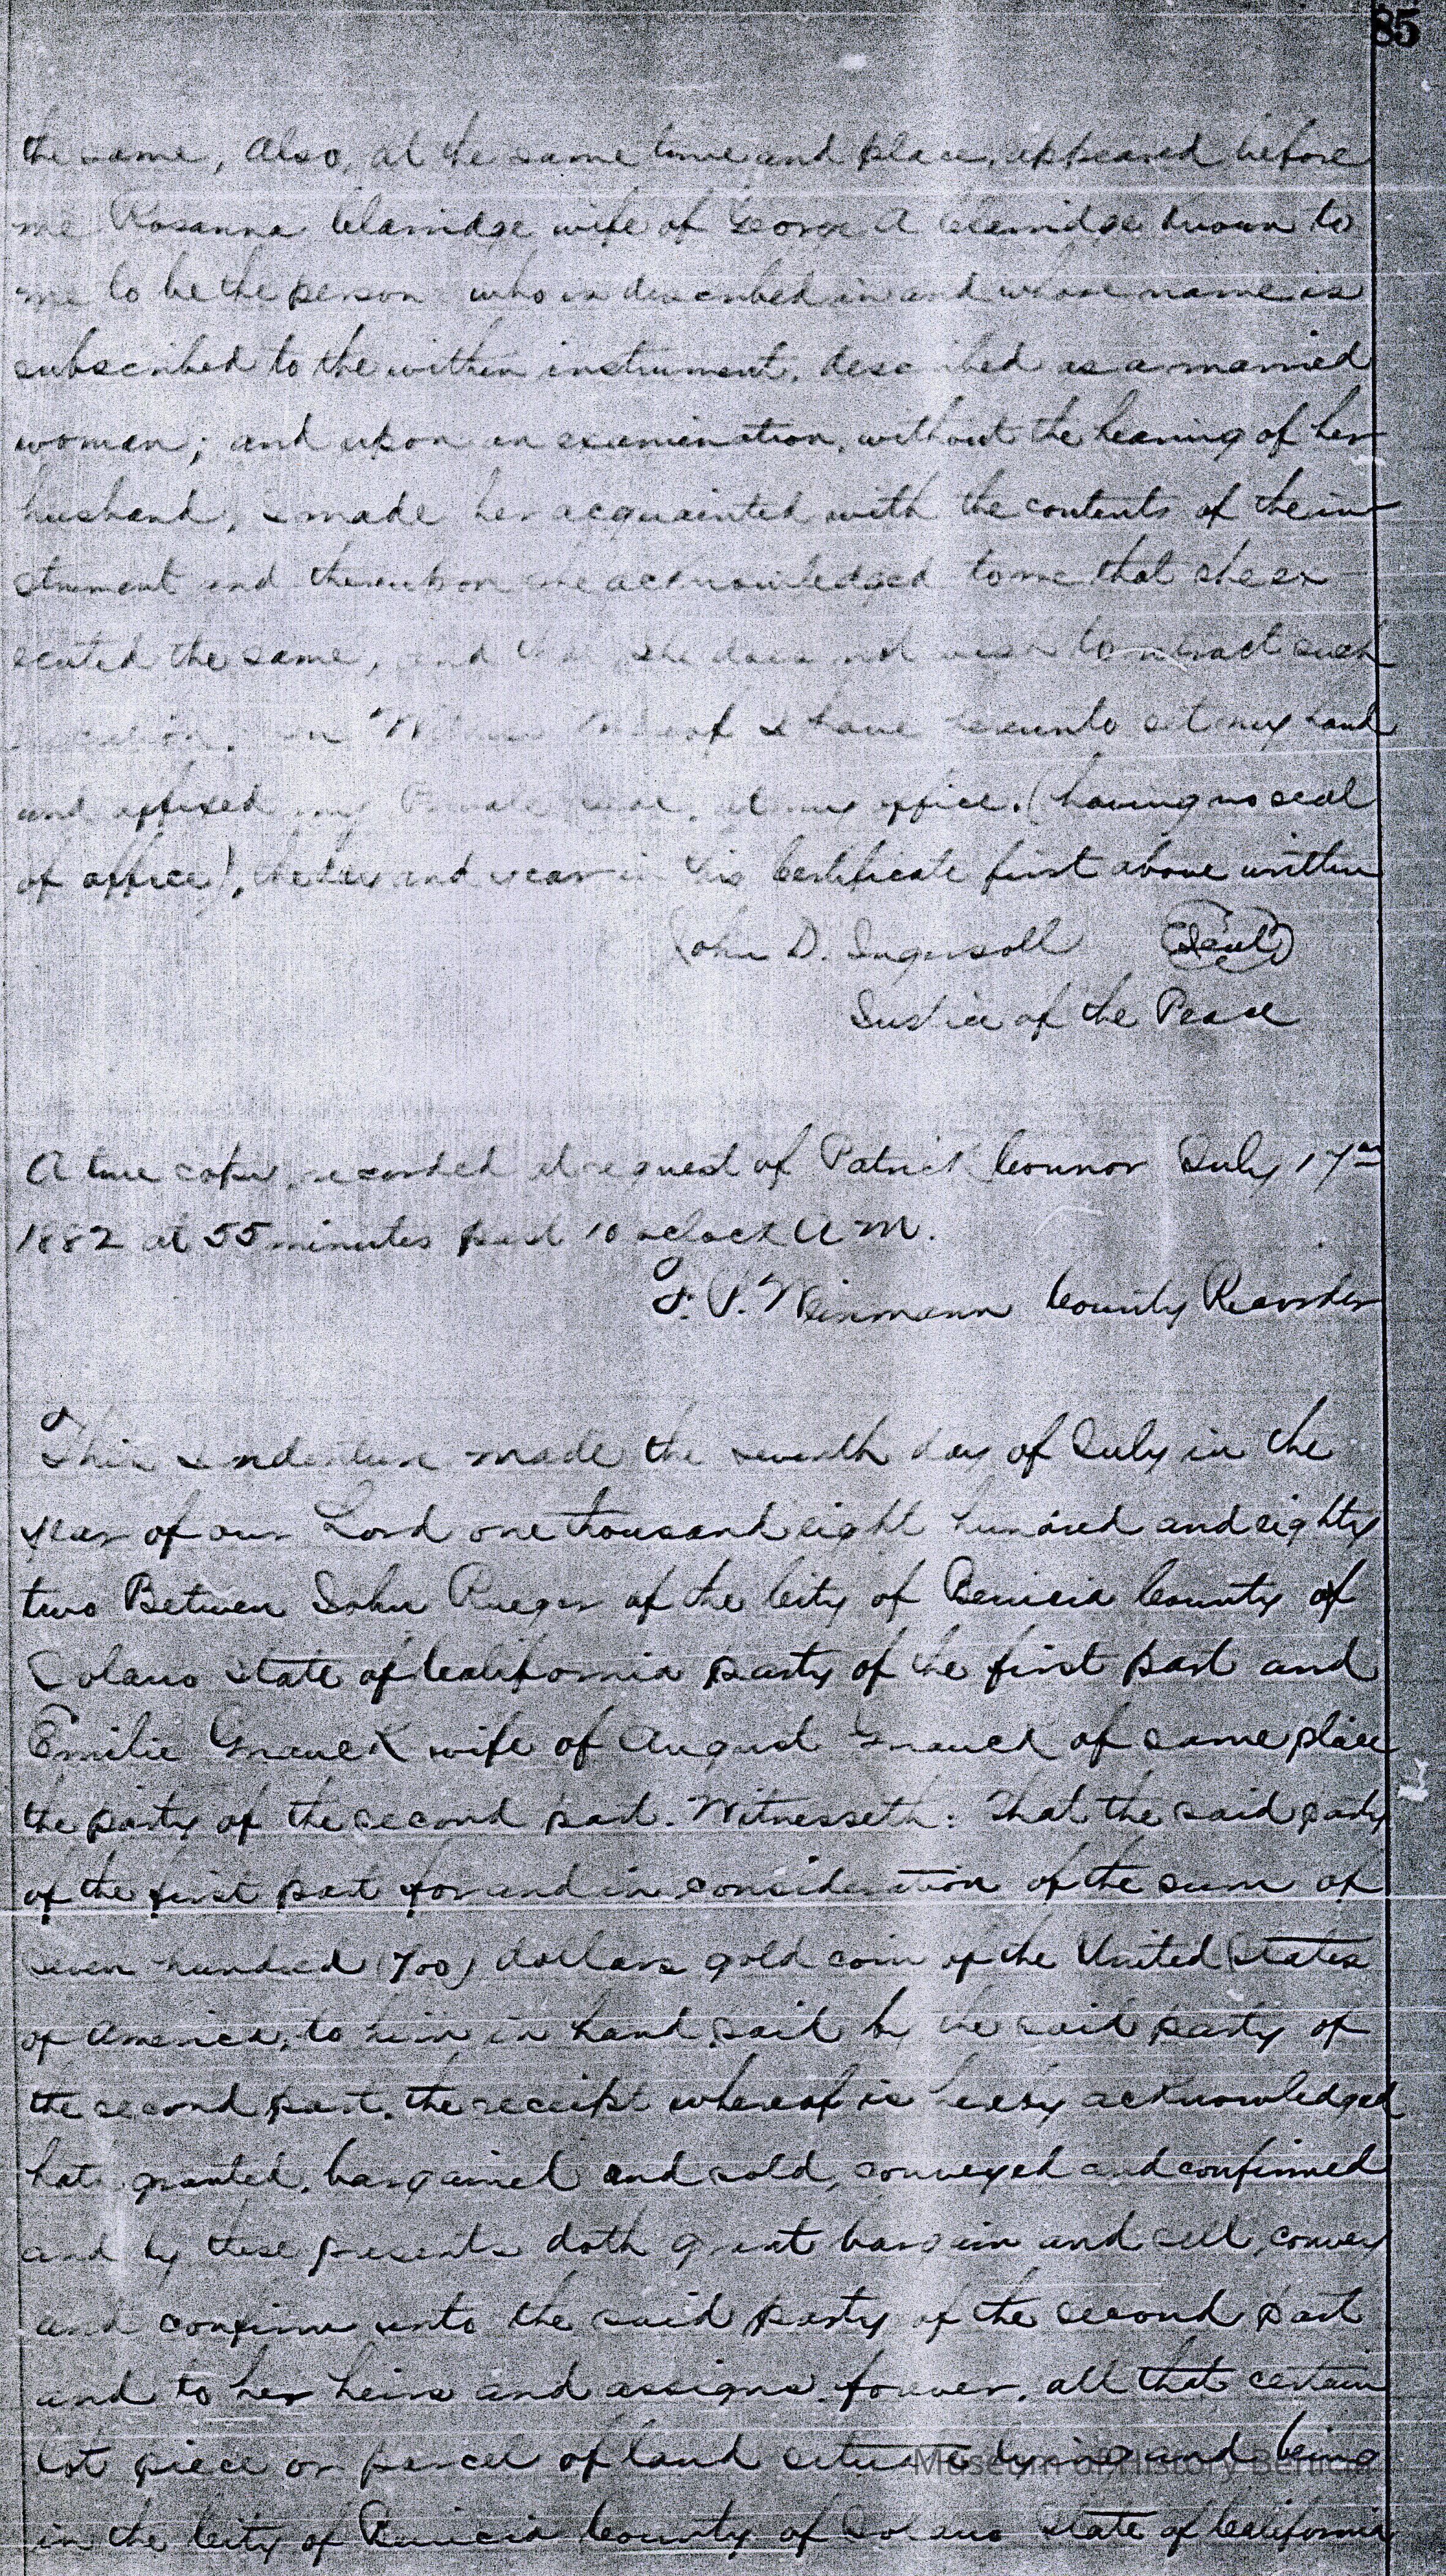 85
the same, Also, at the same time and place, appeared before
me Rosanna Clarridge wife of George A Clarridge known to
me to be the person who is described in and whose name is
subscribed to the within instrument, described as a married
woman; and upon an examination, without the hearing of her
husband, I made her acquainted with the contents of the in
strument and thereupon she acknowledged to me that she ex
ecuted the same, and that she does not wish to retract such
execution. In Witness Whereof I have hereunto set my hand
and affixed my Private seal, at my office, (having no seal
of office), the day and year in this Certificate first above written
John D. Ingersoll (Seal)
Justice of the Peace
A true copy, recorded at request of Patrick Connor July 17th
1882 at 55 minutes past 10 oclock A M.
F. P. Weinmann County Recorder
This Indenture made the seventh day of July in the
year of our Lord one thousand eight hundred and eighty
two Between John Rueger of the City of Benicia County of
Solano State of California party of the first part and
Emilie Gnauck wife of August Gnauck of same place
the party of the second part. Witnesseth: That the said party
of the first part for and in consideration of the sum of
seven hundred (700) dollars gold coin of the United States
of America, to him in hand paid by the said party of
the second part, the receipt whereof is hereby acknowledged
hath granted, bargained and sold, conveyed and confirmed
and by these presents doth grant bargain and sell, convey
and confirm unto the said party of the second part
and to her heirs and assigns forever, all that certain
lot piece or parcel of land situate lying and being
in the City of Benicia County of Solano State of California
Museum of History Benicia